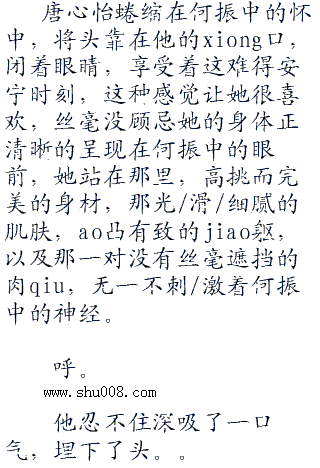 唐心怡蜷缩在何振中的怀
中，将头靠在他的xiong口，
闭着眼睛，享受着这难得安
宁时刻，这种感觉让她很喜
欢，丝毫没顾忌她的身体正
清晰的呈现在何振中的眼
前，她站在那里，高挑而完
美的身材，那光/滑/细腻的
肌肤，ao凸有致的jiao躯，
以及那一对没有丝毫遮挡的
肉qiu，无一不刺/激着何振
中的神经。
呼。
www.shu008.com
他忍不住深吸了一口
气，埋下了头。。